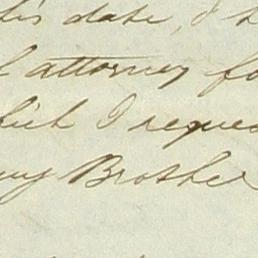 his date, I h
l attorney fo
hich I reques
my Brother